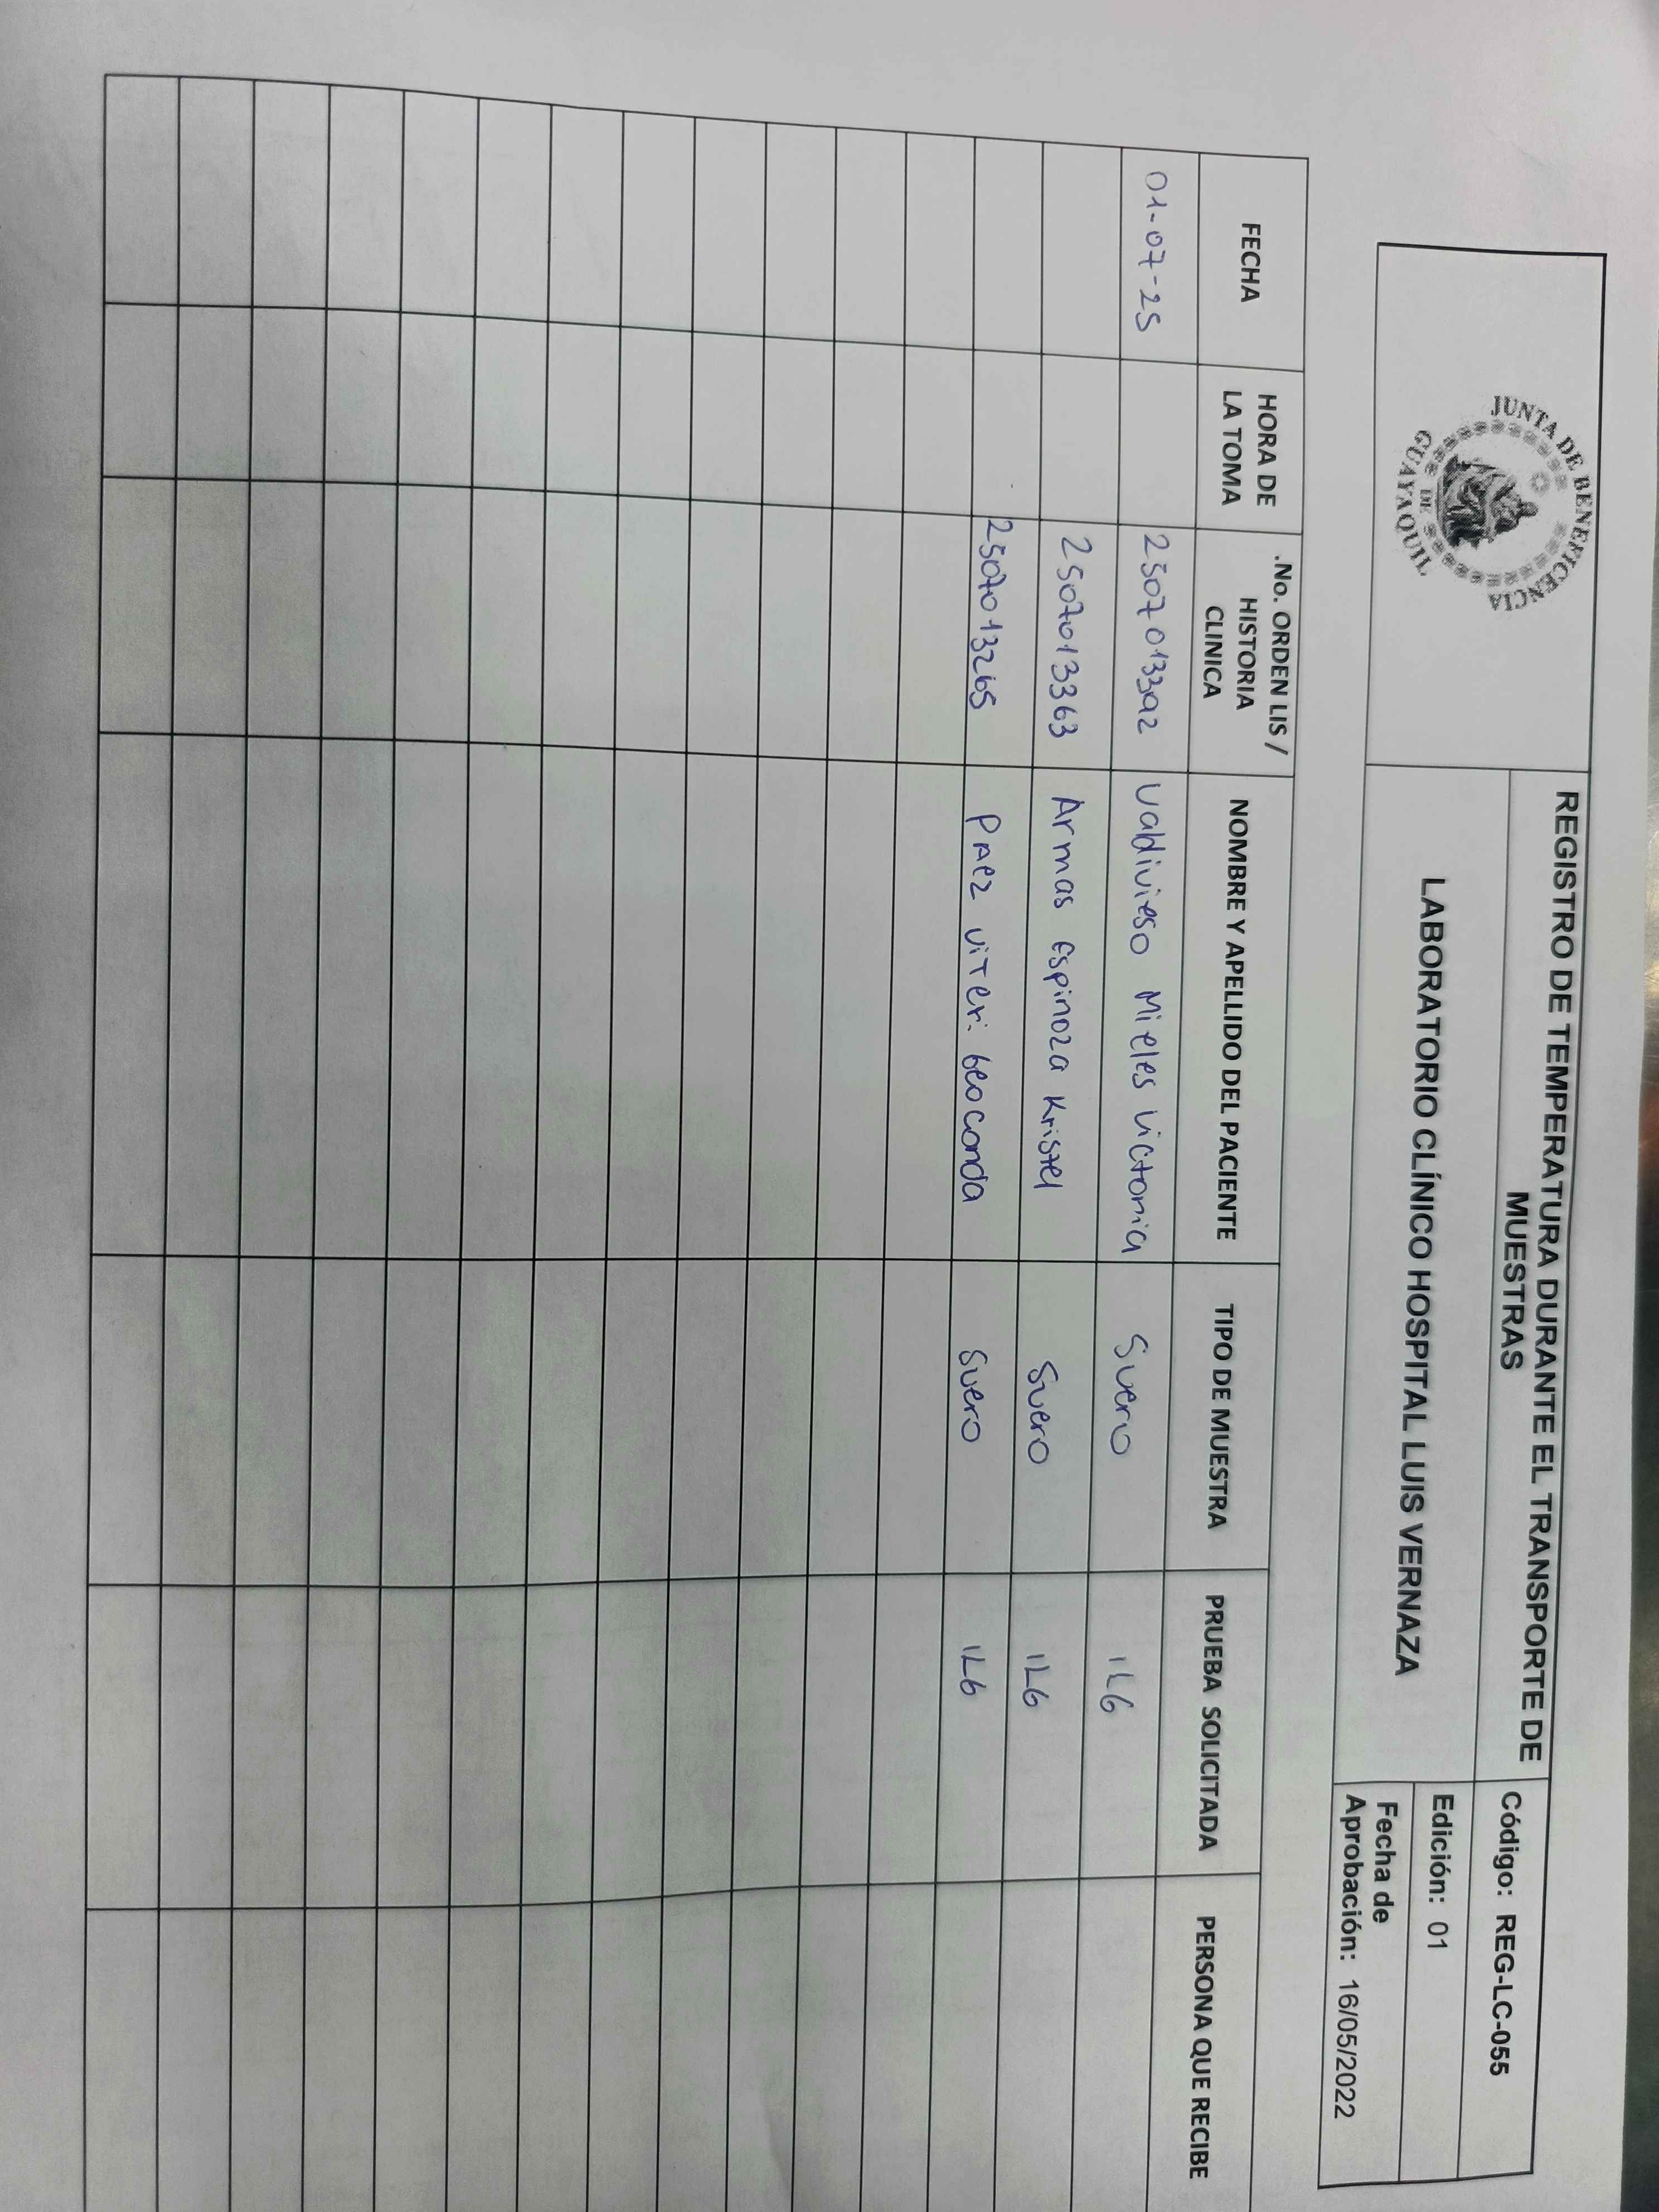 JUNTA DE BENEFICENCIA
DE
GUAYAQUIL
REGISTRO DE TEMPERATURA DURANTE EL TRANSPORTE DE
MUESTRAS
LABORATORIO CLÍNICO HOSPITAL LUIS VERNAZA
Código: REG-LC-055
Edición: 01
Fecha de
Aprobación: 16/05/2022
FECHA
HORA DE
LA TOMA
.No. ORDEN LIS /
HISTORIA
CLINICA
NOMBRE Y APELLIDO DEL PACIENTE
TIPO DE MUESTRA
PRUEBA SOLICITADA
PERSONA QUE RECIBE
01-07-25 2507013392 Valdivieso Mieles Victoria Suero IL6
2507013363 Armas Espinoza Kristel Suero IL6
2507013265 PAez viTeri Geoconda Suero IL6